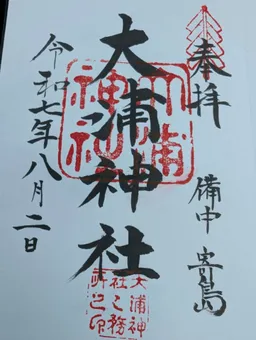 奉拝
備中 寄島
大浦神社
令和七年八月二日
大浦神社
大浦神
社之務
所之印